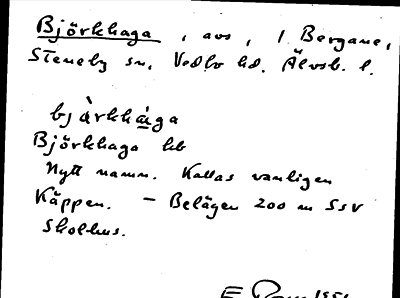 Björkhaga, avs, 1 Bergane,
Steneby sn, Vedbo hd. Älvsb. l.
bjàrkhá̱ga
Björkhaga hb
Nytt namn. Kallas vanligen
Käppen. – Belägen 200 m SSV
Skolhus.
E